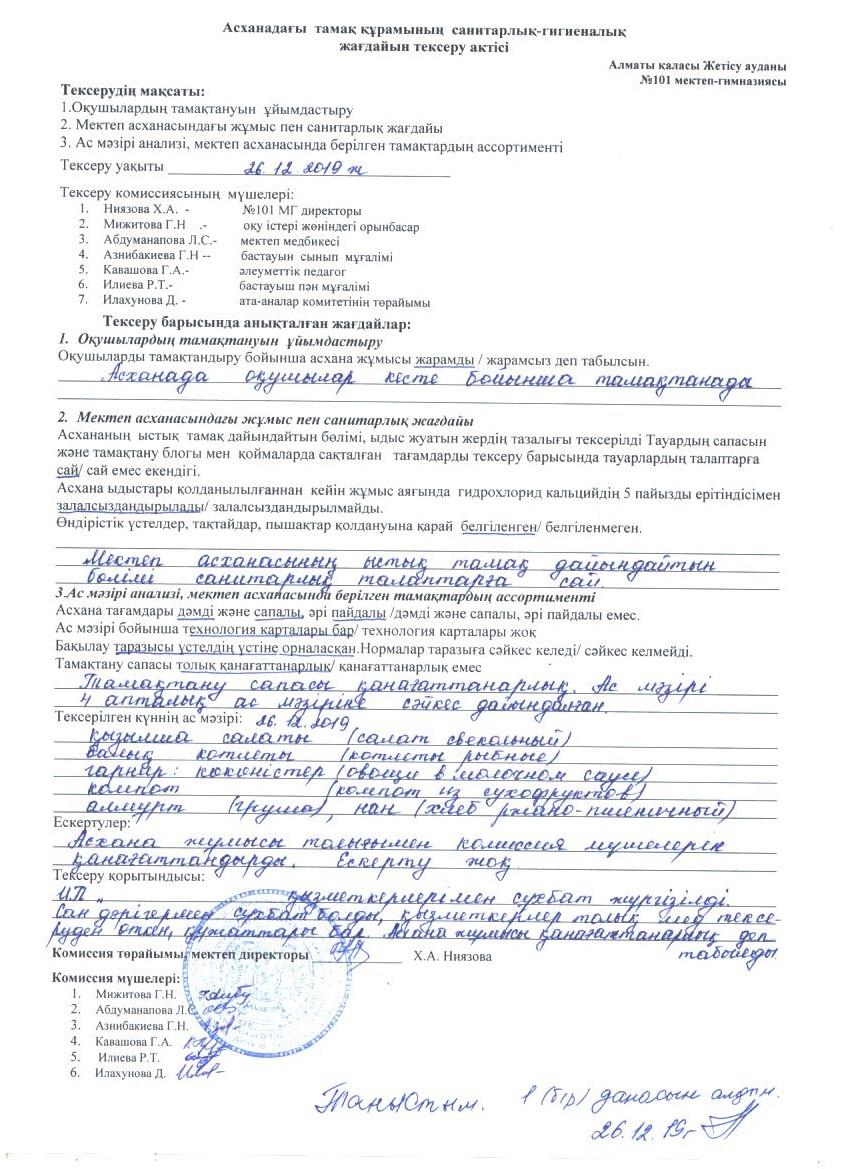 Асханадағы тамақ құрамының санитарлық-гигиеналық
жағдайын тексеру актісі
Алматы қаласы Жетісу ауданы
№101 мектеп-гимназиясы
Тексерудің мақсаты:
1.Оқушылардың тамақтануын ұйымдастыру
2. Мектеп асханасындағы жұмыс пен санитарлық жағдайы
3. Ас мәзірі анализі, мектеп асханасында берілген тамақтардың ассортименті
Тексеру уақыты 26. 12. 2019 ж
Тексеру комиссиясының мүшелері:
1. Ниязова Х.А. - №101 МГ директоры
2. Мижитова Г.Н .- оқу істері жөніндегі орынбасар
3. Абдуманапова Л.С.- мектеп медбикесі
4. Азнибакиева Г.Н -- бастауын сынып мұғалімі
5. Кавашова Г.А.- әлеуметтік педагог
6. Илиева Р.Т.- бастауыш пән мұғалімі
7. Илахунова Д. - ата-аналар комитетінің төрайымы
Тексеру барысында анықталған жағдайлар:
1. Оқушылардың тамақтануын ұйымдастыру
Оқушыларды тамақтандыру бойынша асхана жұмысы жарамды / жарамсыз деп табылсын.
Асханада оқушылар кесте бойынша тамақтанады
2. Мектеп асханасындағы жұмыс пен санитарлық жағдайы
Асхананың ыстық тамақ дайындайтын бөлімі, ыдыс жуатын жердің тазалығы тексерілді Тауардың сапасын
және тамақтану блогы мен қоймаларда сақталған тағамдарды тексеру барысында тауарлардың талаптарға
сай/ сай емес екендігі.
Асхана ыдыстары қолданылылғаннан кейін жұмыс аяғында гидрохлорид кальцийдің 5 пайызды ерітіндісімен
залалсыздандырылады/ залалсыздандырылмайды.
Өндірістік үстелдер, тақтайдар, пышақтар қолдануына қарай белгіленген/ белгіленмеген.
Мектеп асханасының ыстық тамақ дайындайтын
бөлімі санитарлық талаптарға сай.
3.Ас мәзірі анализі, мектеп асханасында берілген тамақтардың ассортименті
Асхана тағамдары дәмді және сапалы, әрі пайдалы /дәмді және сапалы, әрі пайдалы емес.
Ас мәзірі бойынша технология карталары бар/ технология карталары жоқ
Бақылау таразысы үстелдің үстіне орналасқан.Нормалар таразыға сәйкес келеді/ сәйкес келмейді.
Тамақтану сапасы толық қанағаттанарлық/ қанағаттанарлық емес
Тамақтану сапасы қанағаттанарлық. Ас мәзірі
4 апталық ас мәзіріне сәйкес дайындалған.
Тексерілген күннің ас мәзірі: 26. 12. 2019
қызылша салаты (салат свекольный)
балық котлеты (котлеты рыбные)
гарнир: көкөністер (овощи в молочном соусе)
компот (компот из сухофруктов)
алмұрт (груша), нан (хлеб ржано-пшеничный)
Ескертулер:
Асхана жұмысы толығымен комиссия мүшелерін
қанағаттандырды. Ескерту жоқ
Тексеру қорытындысы:
И.П „ қызметкерлерімен сұхбат жүргізілді.
Сан дәрігермен сұхбат болды, қызметкерлер толық мед тексе-
руден өткен, құжаттары бар. Асхана жұмысы қанағаттанарлық деп
табылды
Комиссия төрайымы, мектеп директоры Х.А. Ниязова
Комиссия мүшелері:
1. Мижитова Г.Н.
2. Абдуманапова Л.С
3. Азнибакиева Г.Н.
4. Кавашова Г.А.
5. Илиева Р.Т.
6. Илахунова Д.
Таныстым. 1 (бір) данасын алдым.
26. 12. 19г